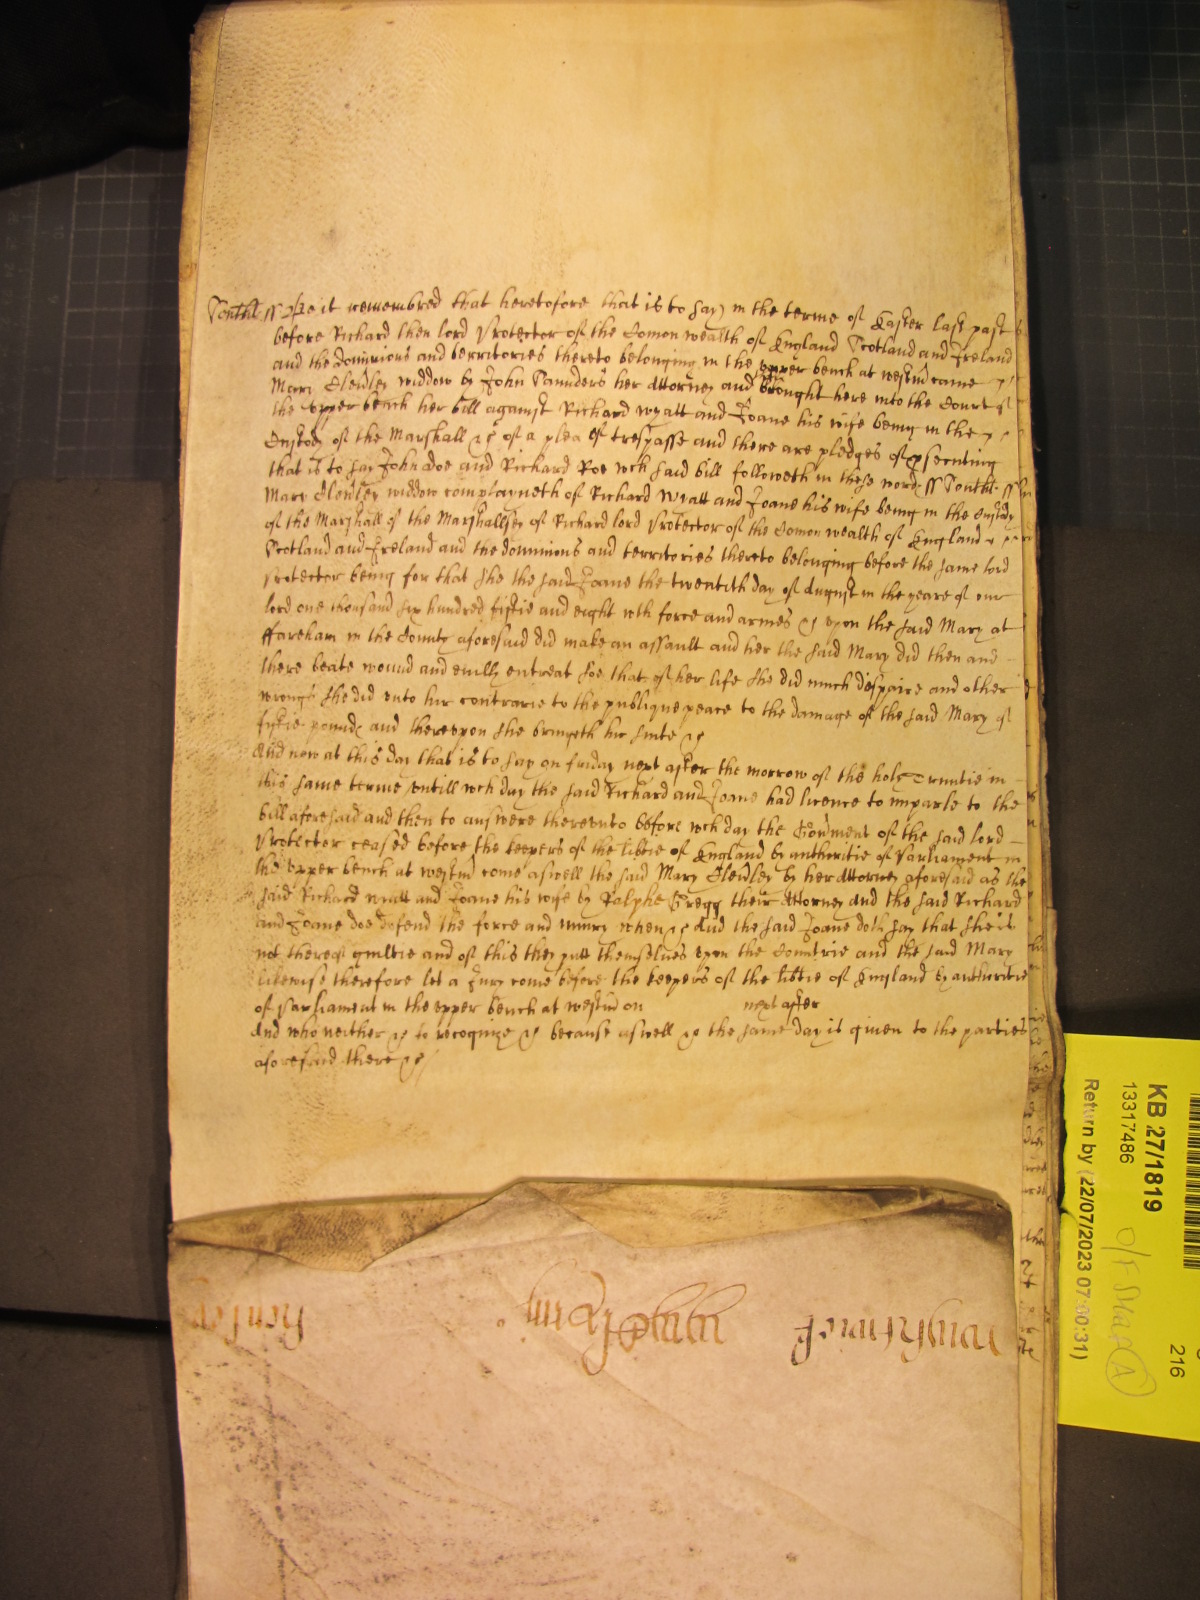 Southt ss Be it remembred that heretofore that is to say in the terme of Easter last past
before Richard then lord Protector of the Comon wealth of England Scotland and Ireland
and the dominions and territories thereto belonging in the upper bench at westm̃ came
Mary Clewley widdow by John Saunders her Attorney and brought here into the Court of
the upper bench her bill against Richard wyatt and Joane his wife being in the
Custody of the Marshall &c of a plea of trespasse and there are pledges of psecuting
that is to say John doe and Richard Roe wch said bill followeth in these words ss Southt ss
Mary Clewley widdow complayneth of Richard Wyatt and Joane his wife being in the Custody
of the Marshall of the Marshallsey of Richard lord Protector of the Comon wealth of England
Scotland and Ireland and the dominions and territories thereto belonging before the same lord
Protector being for that she the said Joane the twentith day of August in the yeare of our
lord one thousand six hundred fiftie and eight wth force and armes &c upon the said Mary at
ffareham in the County aforesaid did make an assault and her the said Mary did then and
there beate wound and evilly entreat soe that of her life she did much despaire and other
wrongs she did unto her contrarie to the publique peace to the damage of the said Mary of
fiftie pounds and thereupon she bringeth her suite &c
And now at this day that is to say on friday next after the morrow of the holy Trinitie in
this same terme untill wch day the said Richard and Joane had licence to imparle to the
bill aforesaid and then to answere thereunto before wch day the Govment of the said lord
Protector ceased before the keepers of the libtie of England by authoritie of Parliament in
the upper bench at westm̃ come aswell the said Mary Clewley by her Attorney aforesaid as the
said Richard wyatt and Joane his wife by Ralphe Gregg their Attorney And the said Richard
and Joane doe defend the force and iniury when &c And the said Joane doth say that she is
not thereof guiltie and of this they putt themselves upon the Countrie and the said Mary
likewise therefore let a Jury come before the keepers of the libtie of England by authoritie
of Parliament in the upper bench at westm̃ on next after
And who neither &c to recognize &c because aswell &c the same day is given to the parties
aforesaid there &c
KB 27/1819
13317486
Return by (22/07/2023 07:00:31)
216